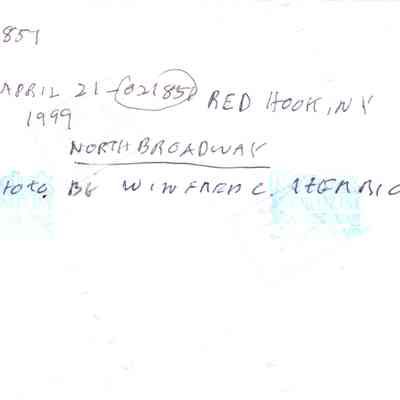 851
APRIL 21 - 021851 RED HOOK, NY
1999
NORTH BROADWAY
BY WINFRED C.